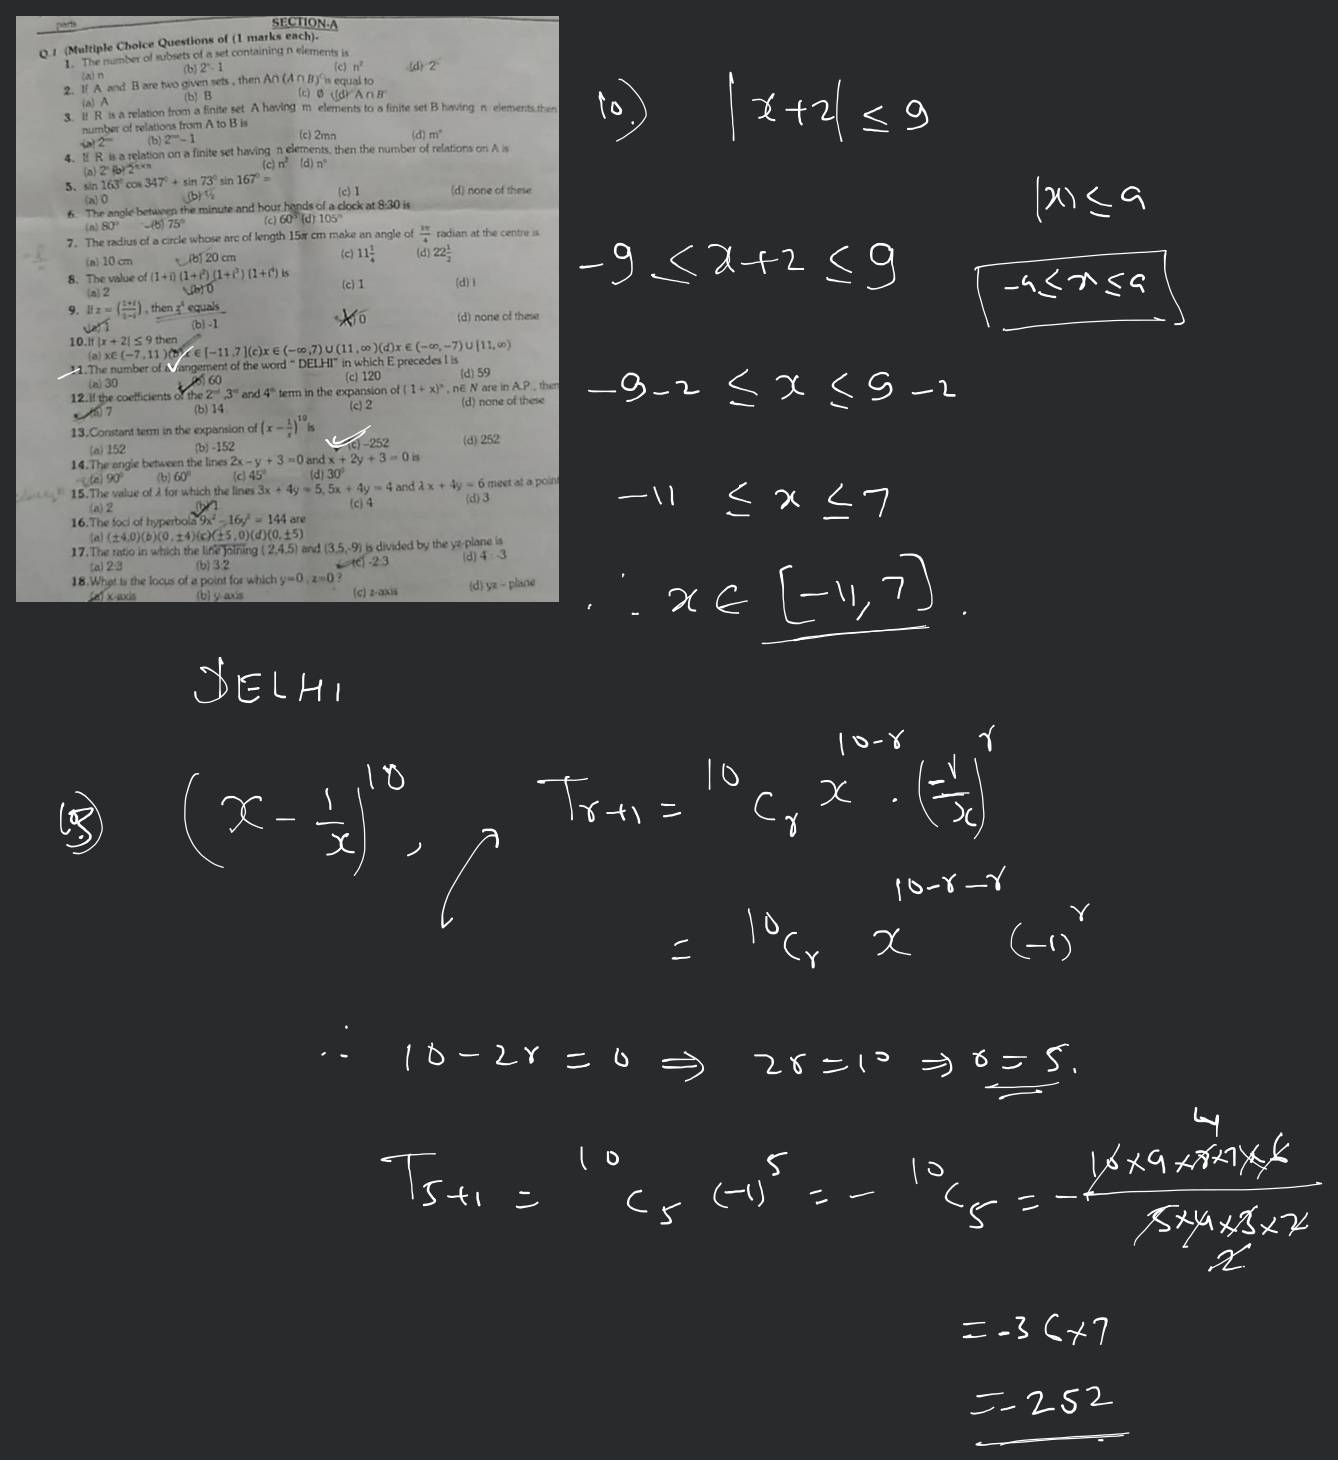 parts
SECTION-A
Q.1 (Multiple Choice Questions of (1 marks each)-
1. The number of subsets of a set containing n elements is
(a) n (b) 2ⁿ-1 (c) n² (d) 2ⁿ
2. If A and B are two given sets, then A∩(A∩B)ᶜ is equal to
(a) A (b) B (c) ∅ (d) A∩Bᶜ
3. If R is a relation from a finite set A having m elements to a finite set B having n elements, then
number of relations from A to B is
(a) 2ᵐⁿ (b) 2ᵐⁿ-1 (c) 2mn (d) mⁿ
4. If R is a relation on a finite set having n elements, then the number of relations on A is
(a) 2ⁿ (b) 2ⁿˣⁿ (c) n² (d) nⁿ
5. sin 163° cos 347° + sin 73° sin 167° =
(a) 0 (b) ½ (c) 1 (d) none of these
6. The angle between the minute and hour hands of a clock at 8:30 is
(a) 80° (b) 75° (c) 60° (d) 105°
7. The radius of a circle whose arc of length 15π cm make an angle of 3π/4 radian at the centre is
(a) 10 cm (b) 20 cm (c) 11¼ (d) 22½
8. The value of (1+i) (1+i²) (1+i³) (1+i⁴) is
(a) 2 (b) 0 (c) 1 (d) i
9. If z = (1+i/1-i), then z⁴ equals
(a) 1 (b) -1 (c) 0 (d) none of these
10.If |x + 2| ≤ 9 then
(a) x∈ (-7, 11) (b)x ∈ [-11,7](c)x ∈ (-∞,7) ∪ (11, ∞)(d)x ∈ (-∞, -7) ∪ [11, ∞)
11.The number of arrangement of the word "DELHI" in which E precedes I is
(a) 30 (b) 60 (c) 120 (d) 59
12.If the coefficients of the 2ⁿᵈ, 3ʳᵈ and 4ᵗʰ term in the expansion of (1 + x)ⁿ, n∈ N are in A.P., then
(a) 7 (b) 14 (c) 2 (d) none of these
13.Constant term in the expansion of (x - 1/x)¹⁰ is
(a) 152 (b) -152 (c) -252 (d) 252
14.The angle between the lines 2x - y + 3 =0 and x + 2y + 3 = 0 is
(a) 90° (b) 60° (c) 45° (d) 30°
15.The value of λ for which the lines 3x + 4y = 5, 5x + 4y = 4 and λ x + 4y = 6 meet at a point
(a) 2 (b) 1 (c) 4 (d) 3
16.The foci of hyperbola 9x² - 16y² = 144 are
(a) (±4,0)(b)(0, ±4)(c)(±5, 0)(d)(0, ±5)
17.The ratio in which the line joining (2,4,5) and (3,5,-9) is divided by the yz-plane is
(a) 2:3 (b) 3:2 (c) -2:3 (d) 4 : -3
18.What is the locus of a point for which y=0, z=0 ?
(a) x-axis (b) y-axis (c) z-axis (d) yz - plane
10.) |x+2| ≤ 9
|x| ≤ a
-9 ≤ x+2 ≤ 9
-a ≤ x ≤ a
-9-2 ≤ x ≤ 9-2
-11 ≤ x ≤ 7
∴ x ∈ [-11, 7].
DELHI
13) (x - 1/x)¹⁰, Tr+1 = ¹⁰Cr x¹⁰⁻ʳ . (-1/x)ʳ
= ¹⁰Cr x¹⁰⁻ʳ⁻ʳ (-1)ʳ
∴ 10-2r = 0 ⇒ 2r=10 ⇒ r = 5.
T5+1 = ¹⁰C5 (-1)⁵ = - ¹⁰C5 = - 10×9×8×7×6 / 5×4×3×2
4
2
= -36×7
= -252